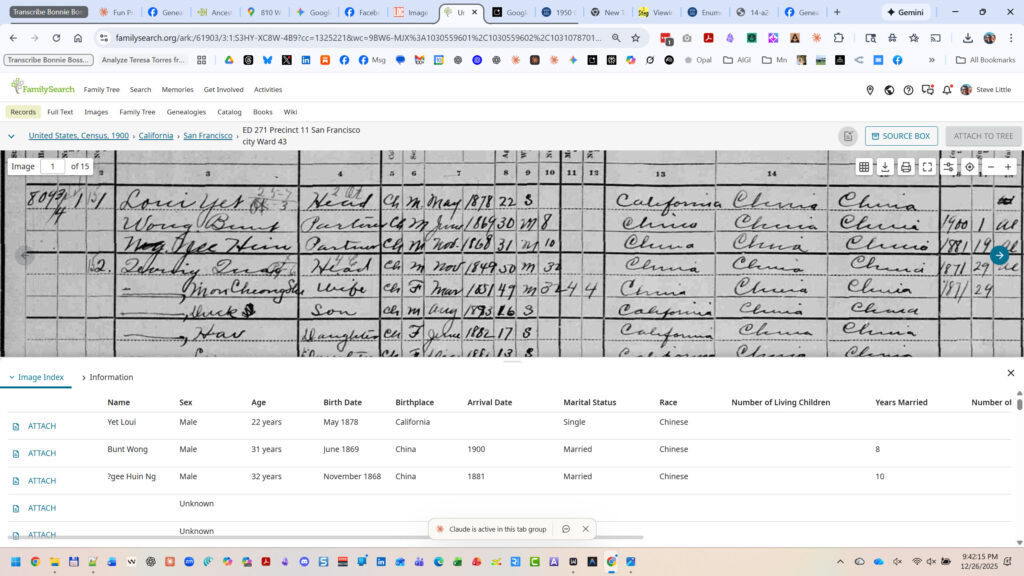 Transcribe Bonnie Boss...
Fun P
Genea
Ances
810 W
Google
Faceb
Image
Googl
1950 (
New T
Viewi
Enum
14-a2
Genea
Gemini
familysearch.org/ark:/61903/3:1:S3HY-XC8W-4B9?cc=1325221&wc=9BW6-MJX%3A1030559601%2C1030559602%2C1031078701...
Transcribe Bonnie Boss...
Analyze Teresa Torres fr...
Msg
Opal
AIGI
Mn
All Bookmarks
FamilySearch
Family Tree
Search
Memories
Get Involved
Activities
Steve Little
Records
Full Text
Images
Family Tree
Genealogies
Catalog
Books
Wiki
United States, Census, 1900 › California › San Francisco ›
ED 271 Precinct 11 San Francisco
city Ward 43
SOURCE BOX
ATTACH TO TREE
Image 1 of 15
3 4 5 6 7 8 9 10 11 12 13 14
Loui Yet Head Ch M May 1878 22 S California China China
Wong Bunt Partner Ch M June 1869 30 M 8 China China China 1900 1
Partner Ch M Nov. 1868 31 M 10 China China China 1881 19
Head Ch M Nov 1849 50 M 32 China China China 1871 29
Wife Ch F Mar 1851 47 M 32 4 4 China China China 1871 29
Son Ch M Aug S California China China
Daughter Ch F June 1882 17 S California China China
Image Index
Information
Name Sex Age Birth Date Birthplace Arrival Date Marital Status Race Number of Living Children Years Married Number of
ATTACH Yet Loui Male 22 years May 1878 California Single Chinese
ATTACH Bunt Wong Male 31 years June 1869 China 1900 Married Chinese 8
ATTACH ?gee Huin Ng Male 32 years November 1868 China 1881 Married Chinese 10
ATTACH Unknown
ATTACH Unknown
Claude is active in this tab group
9:42:15 PM
12/26/2025